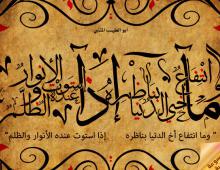 ابو الطيب المتنبي
وما انتفاع أخي الدنيا بناظره إذا استوت عنده الأنوار والظلم
" وما انتفاع أخ الدنيا بناظره إذا استوت عنده الأنوار والظلم "